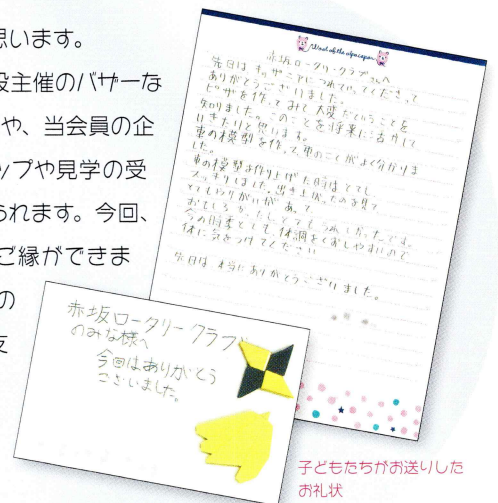 思います。
設主催のバザーな
や、当会員の企
ップや見学の受
られます。今回、
ご縁ができま
の
支
赤坂ロータリークラブさんへ
先日はキッザニアにつれていってくださって
ありがとうございました。
ピザを作ってみて大変だということを
知りました。このことを将来に活かして
いきたいと思います。
車の模型を作って、車のことがよく分かりま
した。
車の模型を作り上げた時はとても
スッキリしました。出き上がったのを見て
とてもいがいがあって
おもしろかったし、とてもうれしかったです。
今の時季とても体調をくずしやすいので
体に気をつけてください
先日は本当にありがとうございました。
赤坂ロータリークラブ
のみな様へ
今回はありがとう
ございました。
子どもたちがお送りした
お礼状